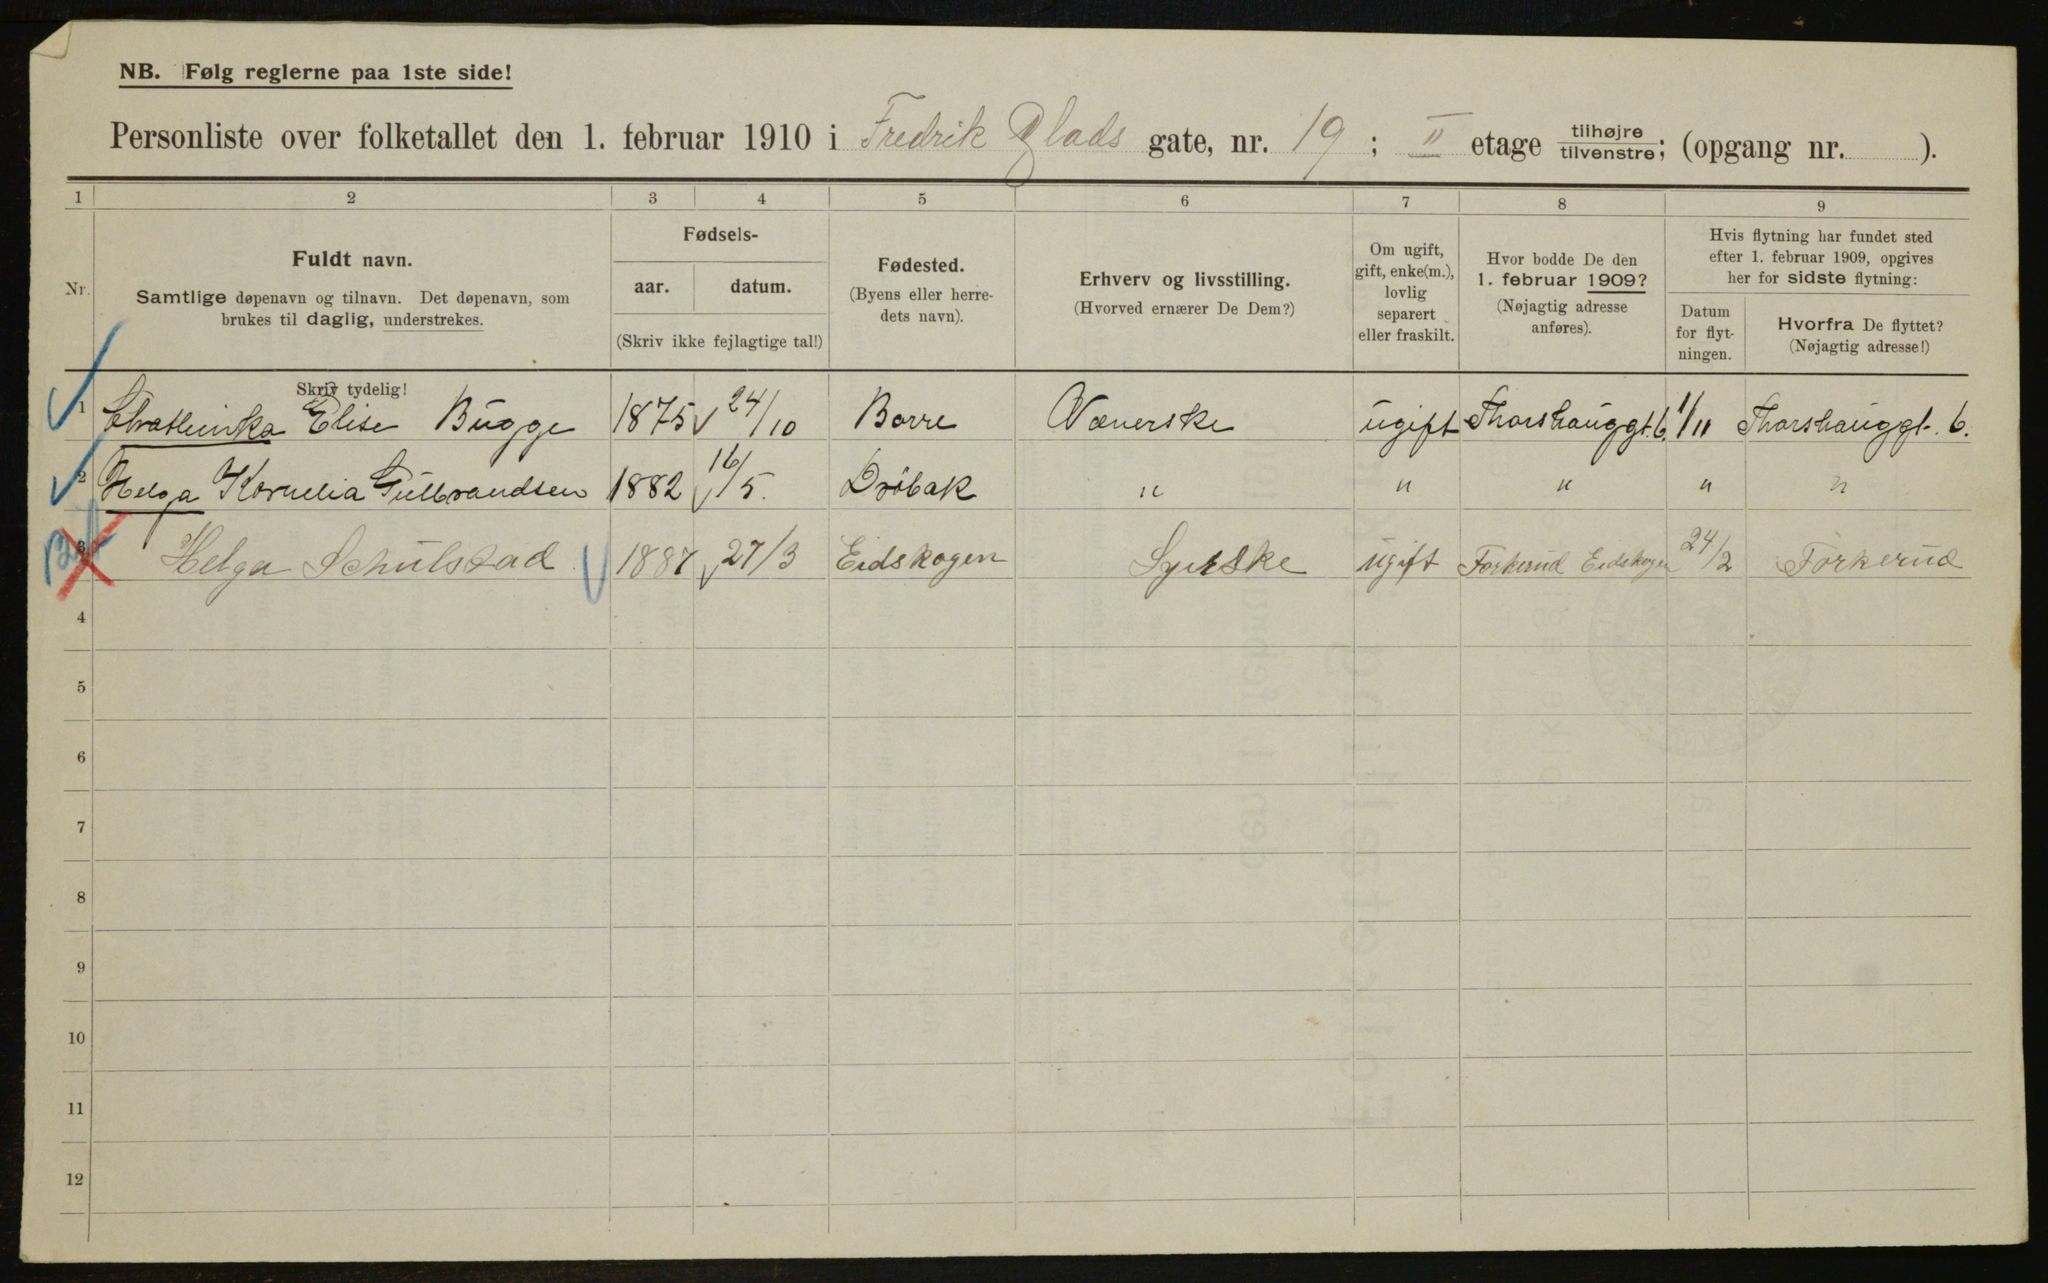 NB. Følg reglerne paa 1ste side!
Personliste over folketallet den 1. februar 1910 i Fredrik Glads gate, nr. 19 ; II etage tilhøjre/tilvenstre; (opgang nr. ).
1 2 3 4 5 6 7 8 9
Nr.
Fuldt navn.
Samtlige døpenavn og tilnavn. Det døpenavn, som
brukes til daglig, understrekes.
Skriv tydelig!
Fødsels-
aar. datum.
(Skriv ikke fejlagtige tal!)
Fødested.
(Byens eller herre-
dets navn).
Erhverv og livsstilling.
(Hvorved ernærer De Dem?)
Om ugift,
gift, enke(m.),
lovlig
separert
eller fraskilt.
Hvor bodde De den
1. februar 1909?
(Nøjagtig adresse
anføres).
Hvis flytning har fundet sted
efter 1. februar 1909, opgives
her for sidste flytning:
Datum
for flyt-
ningen.
Hvorfra De flyttet?
(Nøjagtig adresse!)
1 Elise Bugge 1875 24/10 Borre Væverske ugift Thorshauggt. 6. 1/11 Thorshauggt. 6.
2 Helga Kornelia Gulbrandsen 1882 16/5. Drøbak " " " " "
3 Helga Schulstad 1887 27/3 Eidskogen Syerske ugift Forkerud Eidskogen 24/2 Forkerud
4
5
6
7
8
9
10
11
12